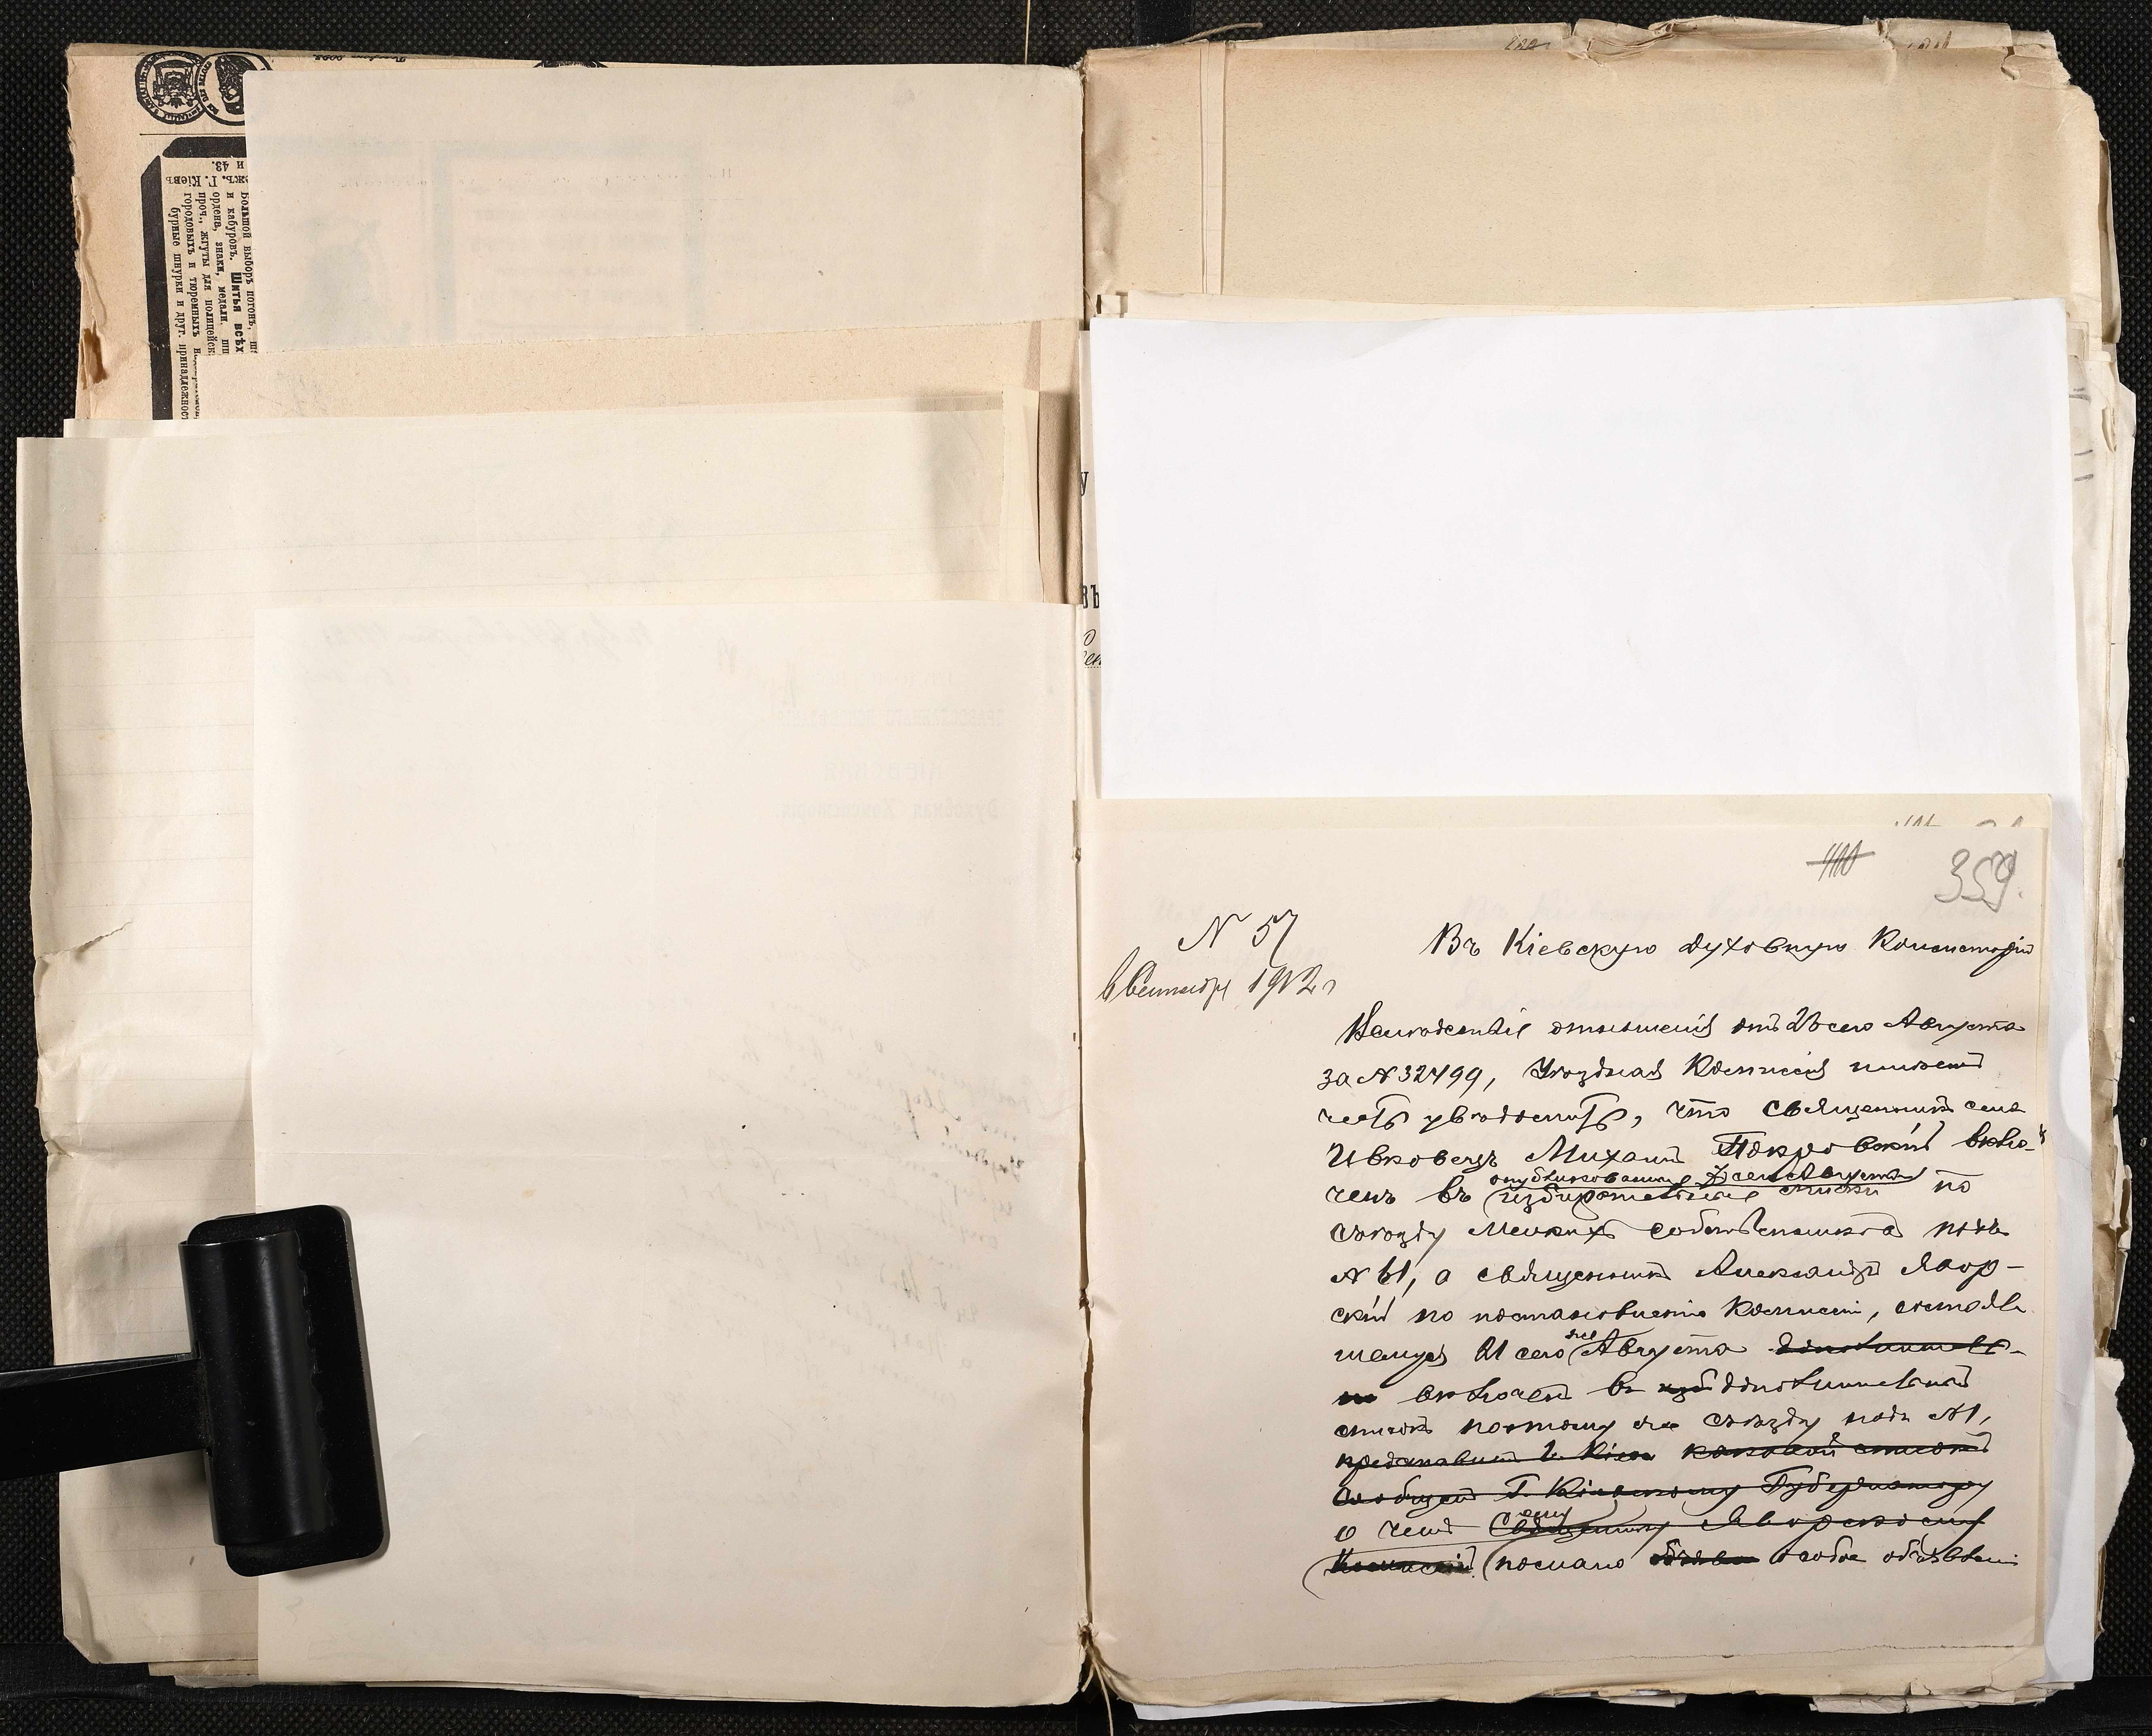 и 43.
ежъ. Г. Кіевъ
Большой выборъ погонъ, ш
и кабуровъ. Шитья всѣх
ордена, знаки, медали, шп
проч., жгуты для полицейск
городовыхъ и тюремныхъ н
бурные шнурки и друг. принадлежнос
у
въ
359.
N 57
6 Сентября 1912 г
Въ Кіевскую духовную Консисторію
Вслѣдствіе отношенія отъ 23 сего Августа
за N 32499, Уѣздная Коммисія имѣетъ
честь увѣдомить, что священникъ села
Ивковецъ Михаилъ Покровскій вклю-
ченъ въ опубликованные 7 сего Августа
избирательные списки по
съѣзду мелкихъ собственниковъ подъ
N 61, а священникъ Александръ Явор-
скій по постановленію Коммисіи, состояв
шемуся 21 сего Августа дополнитель-
но включенъ въ изб дополнительный
списокъ по тому же съѣзду подъ N 1,
представилъ Г. Кіев каковой списокъ
сообщенъ Г. Кіевскому Губернатору
о чемъ Священнику Яворскому
ему
Коммисіей послано объявле особое объявленіе